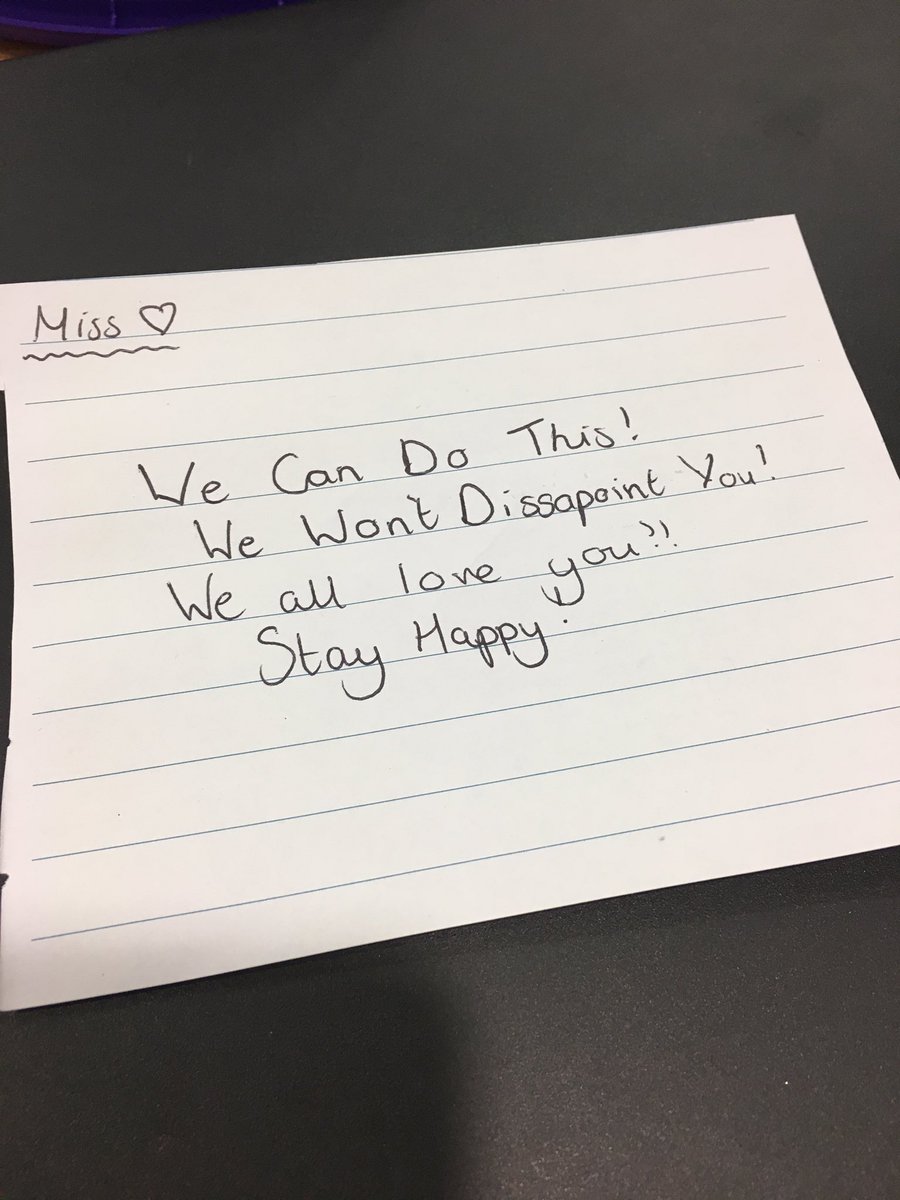 Miss ♡
We Can Do This!
We Won't Dissapoint You!
We all love you!!
Stay Happy.